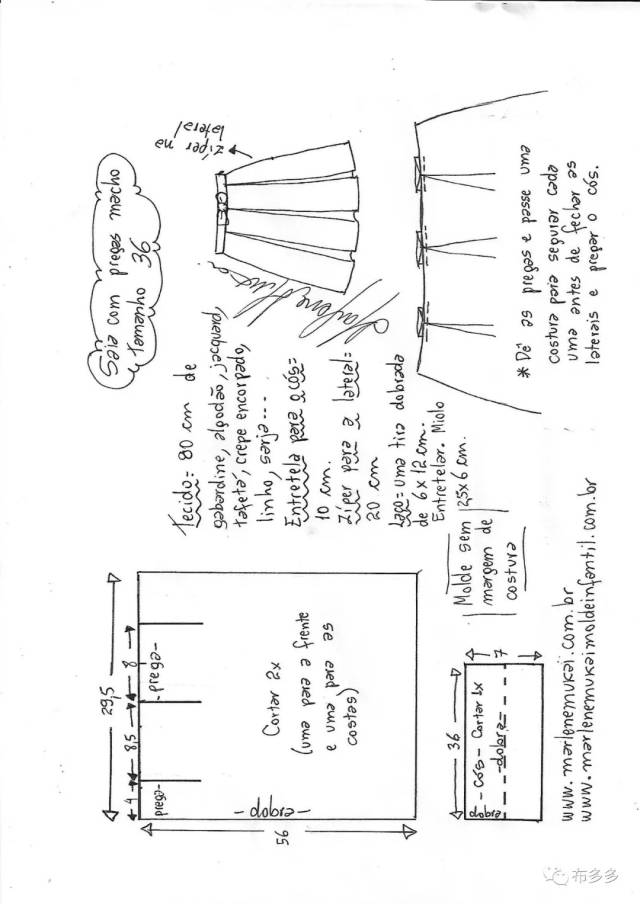 Saia com pregas macho
tamanho 36
zíper na
lateral
Tecido: 80 cm de
gabardine, algodão, jacquard,
tafetá, crepe encorpado,
linho, sarja...
Entretela para o cós=
10 cm.
Zíper para a lateral:
20 cm
Laço= uma tira dobrada
de 6 x 12 cm.
Entretelar. Miolo
2,5x6 cm.
* Dê as pregas e passe uma
costura para segurar cada
uma antes de fechar as
laterais e pregar o cós.
29,5
4
8,5
8
prega-
-prega-
Cortar 2x
(uma para a frente
e uma para as
costas)
- dobra -
56
Molde sem
margem de
costura
36
7
- Cós - Cortar 1x
-dobra-
dobra
www.marlenemukai.com.br
www.marlenemukaimoldeinfantil.com.br
布多多